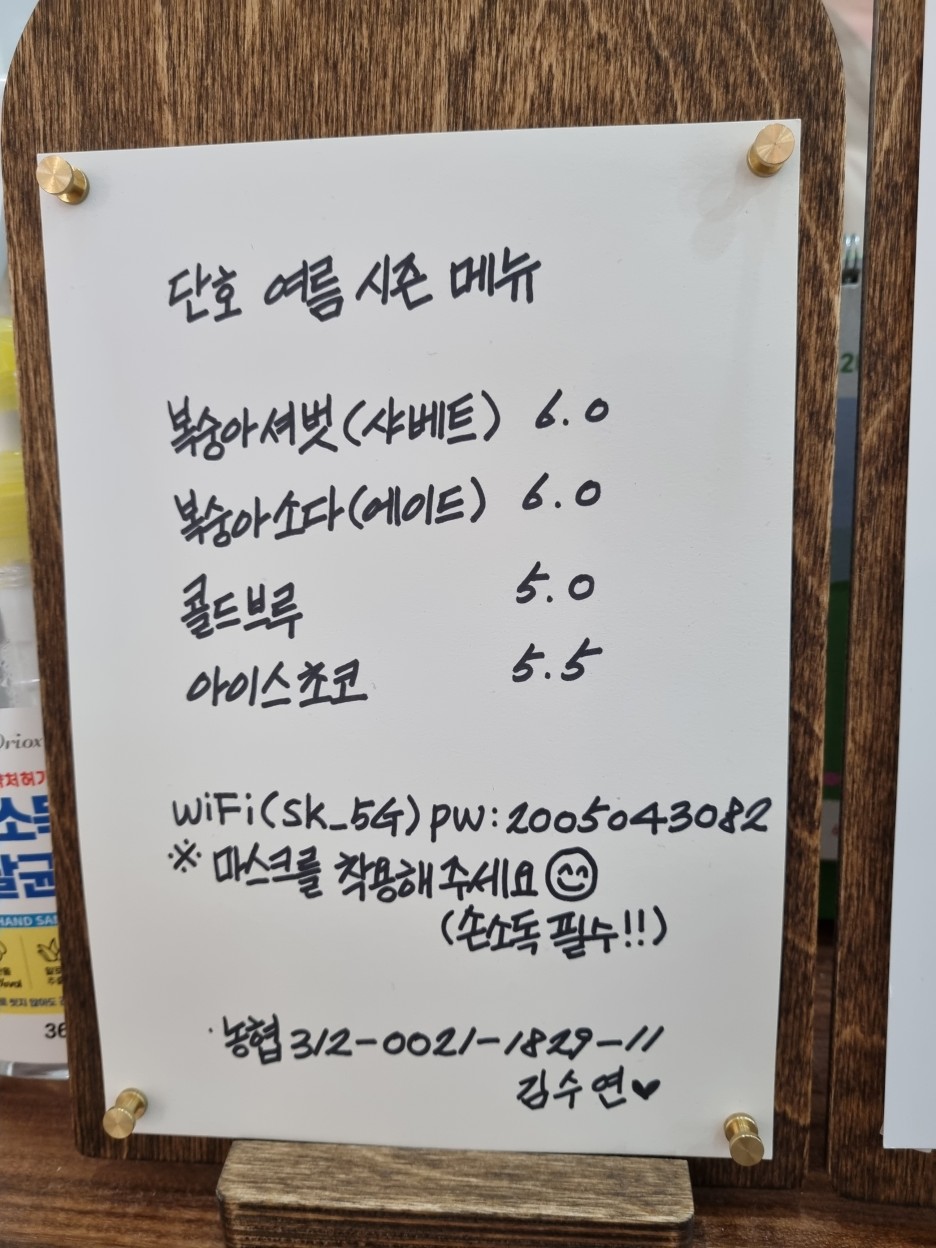 단호 여름 시즌 메뉴
복숭아셔벗(샤베트) 6.0
복숭아소다(에이드) 6.0
콜드브루 5.0
아이스초코 5.5
WiFi(SK_5G) PW:2005043082
※ 마스크를 착용해주세요
(손소독 필수!!)
농협 312-0021-1829-11
김수연♥
HAND SA
36